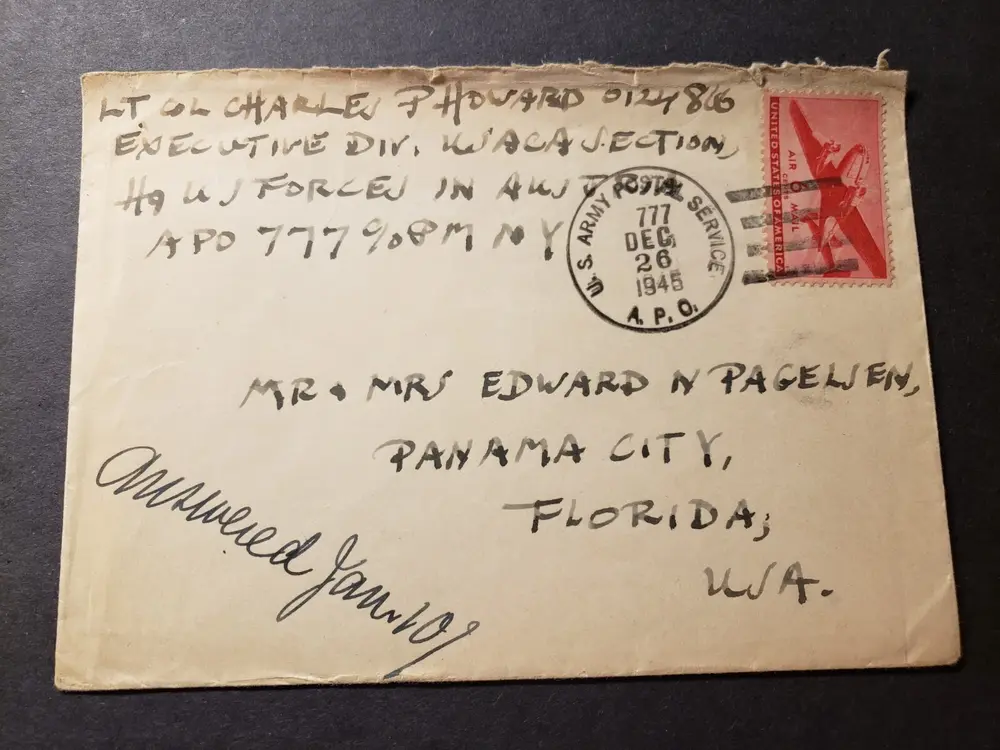 LT COL CHARLES P HOWARD 0124866
EXECUTIVE DIV. USACA SECTION,
HQ US FORCES IN AUSTRIA
APO 777 % PM NY
U.S. ARMY POSTAL SERVICE
777
DEC
26
1945
A. P. O.
UNITED STATES OF AMERICA
AIR MAIL
6 CENTS
MR & MRS EDWARD N PAGELSEN,
PANAMA CITY,
FLORIDA,
USA.
Answered Jan. 10